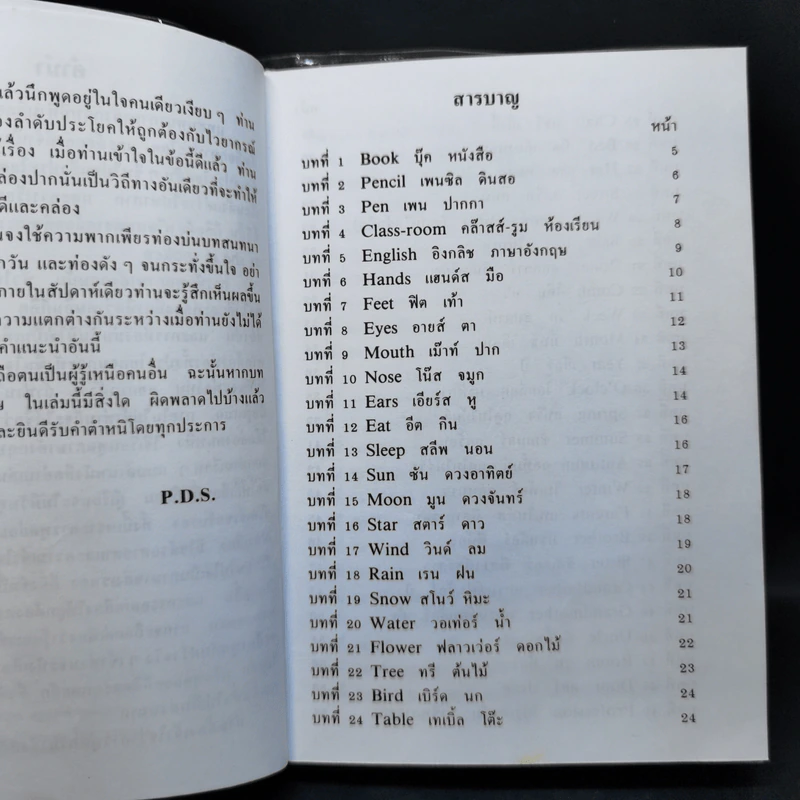 ล้วนึกพูดอยู่ในใจคนเดียวเงียบ ๆ ท่าน
องลำดับประโยคให้ถูกต้องกับไวยากรณ์
เรื่อง เมื่อท่านเข้าใจในข้อนี้ดีแล้ว ท่าน
ล่องปากนั่นเป็นวิถีทางอันเดียวที่จะทำให้
ดีและคล่อง
จงใช้ความพากเพียรท่องบ่นบทสนทนา
กวัน และท่องดัง ๆ จนกระทั่งขึ้นใจ อย่า
ภายในสัปดาห์เดียวท่านจะรู้สึกเห็นผลขึ้น
ความแตกต่างกันระหว่างเมื่อท่านยังไม่ได้
คำแนะนำอันนี้
ถือตนเป็นผู้รู้เหนือคนอื่น ฉะนั้นหากบท
ในเล่มนี้มีสิ่งใด ผิดพลาดไปบ้างแล้ว
ละยินดีรับคำตำหนิโดยทุกประการ
P.D.S.
สารบาญ
หน้า
บทที่ 1 Book บุ๊ค หนังสือ 5
บทที่ 2 Pencil เพนซิล ดินสอ 6
บทที่ 3 Pen เพน ปากกา 7
บทที่ 4 Class-room คล๊าสส์-รูม ห้องเรียน 8
บทที่ 5 English อิงกลิช ภาษาอังกฤษ 9
บทที่ 6 Hands แฮนด์ส มือ 10
บทที่ 7 Feet ฟิต เท้า 11
บทที่ 8 Eyes อายส์ ตา 12
บทที่ 9 Mouth เม๊าท์ ปาก 13
บทที่ 10 Nose โน๊ส จมูก 14
บทที่ 11 Ears เอียร์ส หู 14
บทที่ 12 Eat อีต กิน 16
บทที่ 13 Sleep สลีพ นอน 16
บทที่ 14 Sun ซัน ดวงอาทิตย์ 17
บทที่ 15 Moon มูน ดวงจันทร์ 18
บทที่ 16 Star สตาร์ ดาว 18
บทที่ 17 Wind วินด์ ลม 19
บทที่ 18 Rain เรน ฝน 20
บทที่ 19 Snow สโนว์ หิมะ 21
บทที่ 20 Water วอเท่อร์ น้ำ 21
บทที่ 21 Flower ฟลาวเว่อร์ ดอกไม้ 22
บทที่ 22 Tree ทรี ต้นไม้ 23
บทที่ 23 Bird เบิร์ด นก 24
บทที่ 24 Table เทเบิ้ล โต๊ะ 24